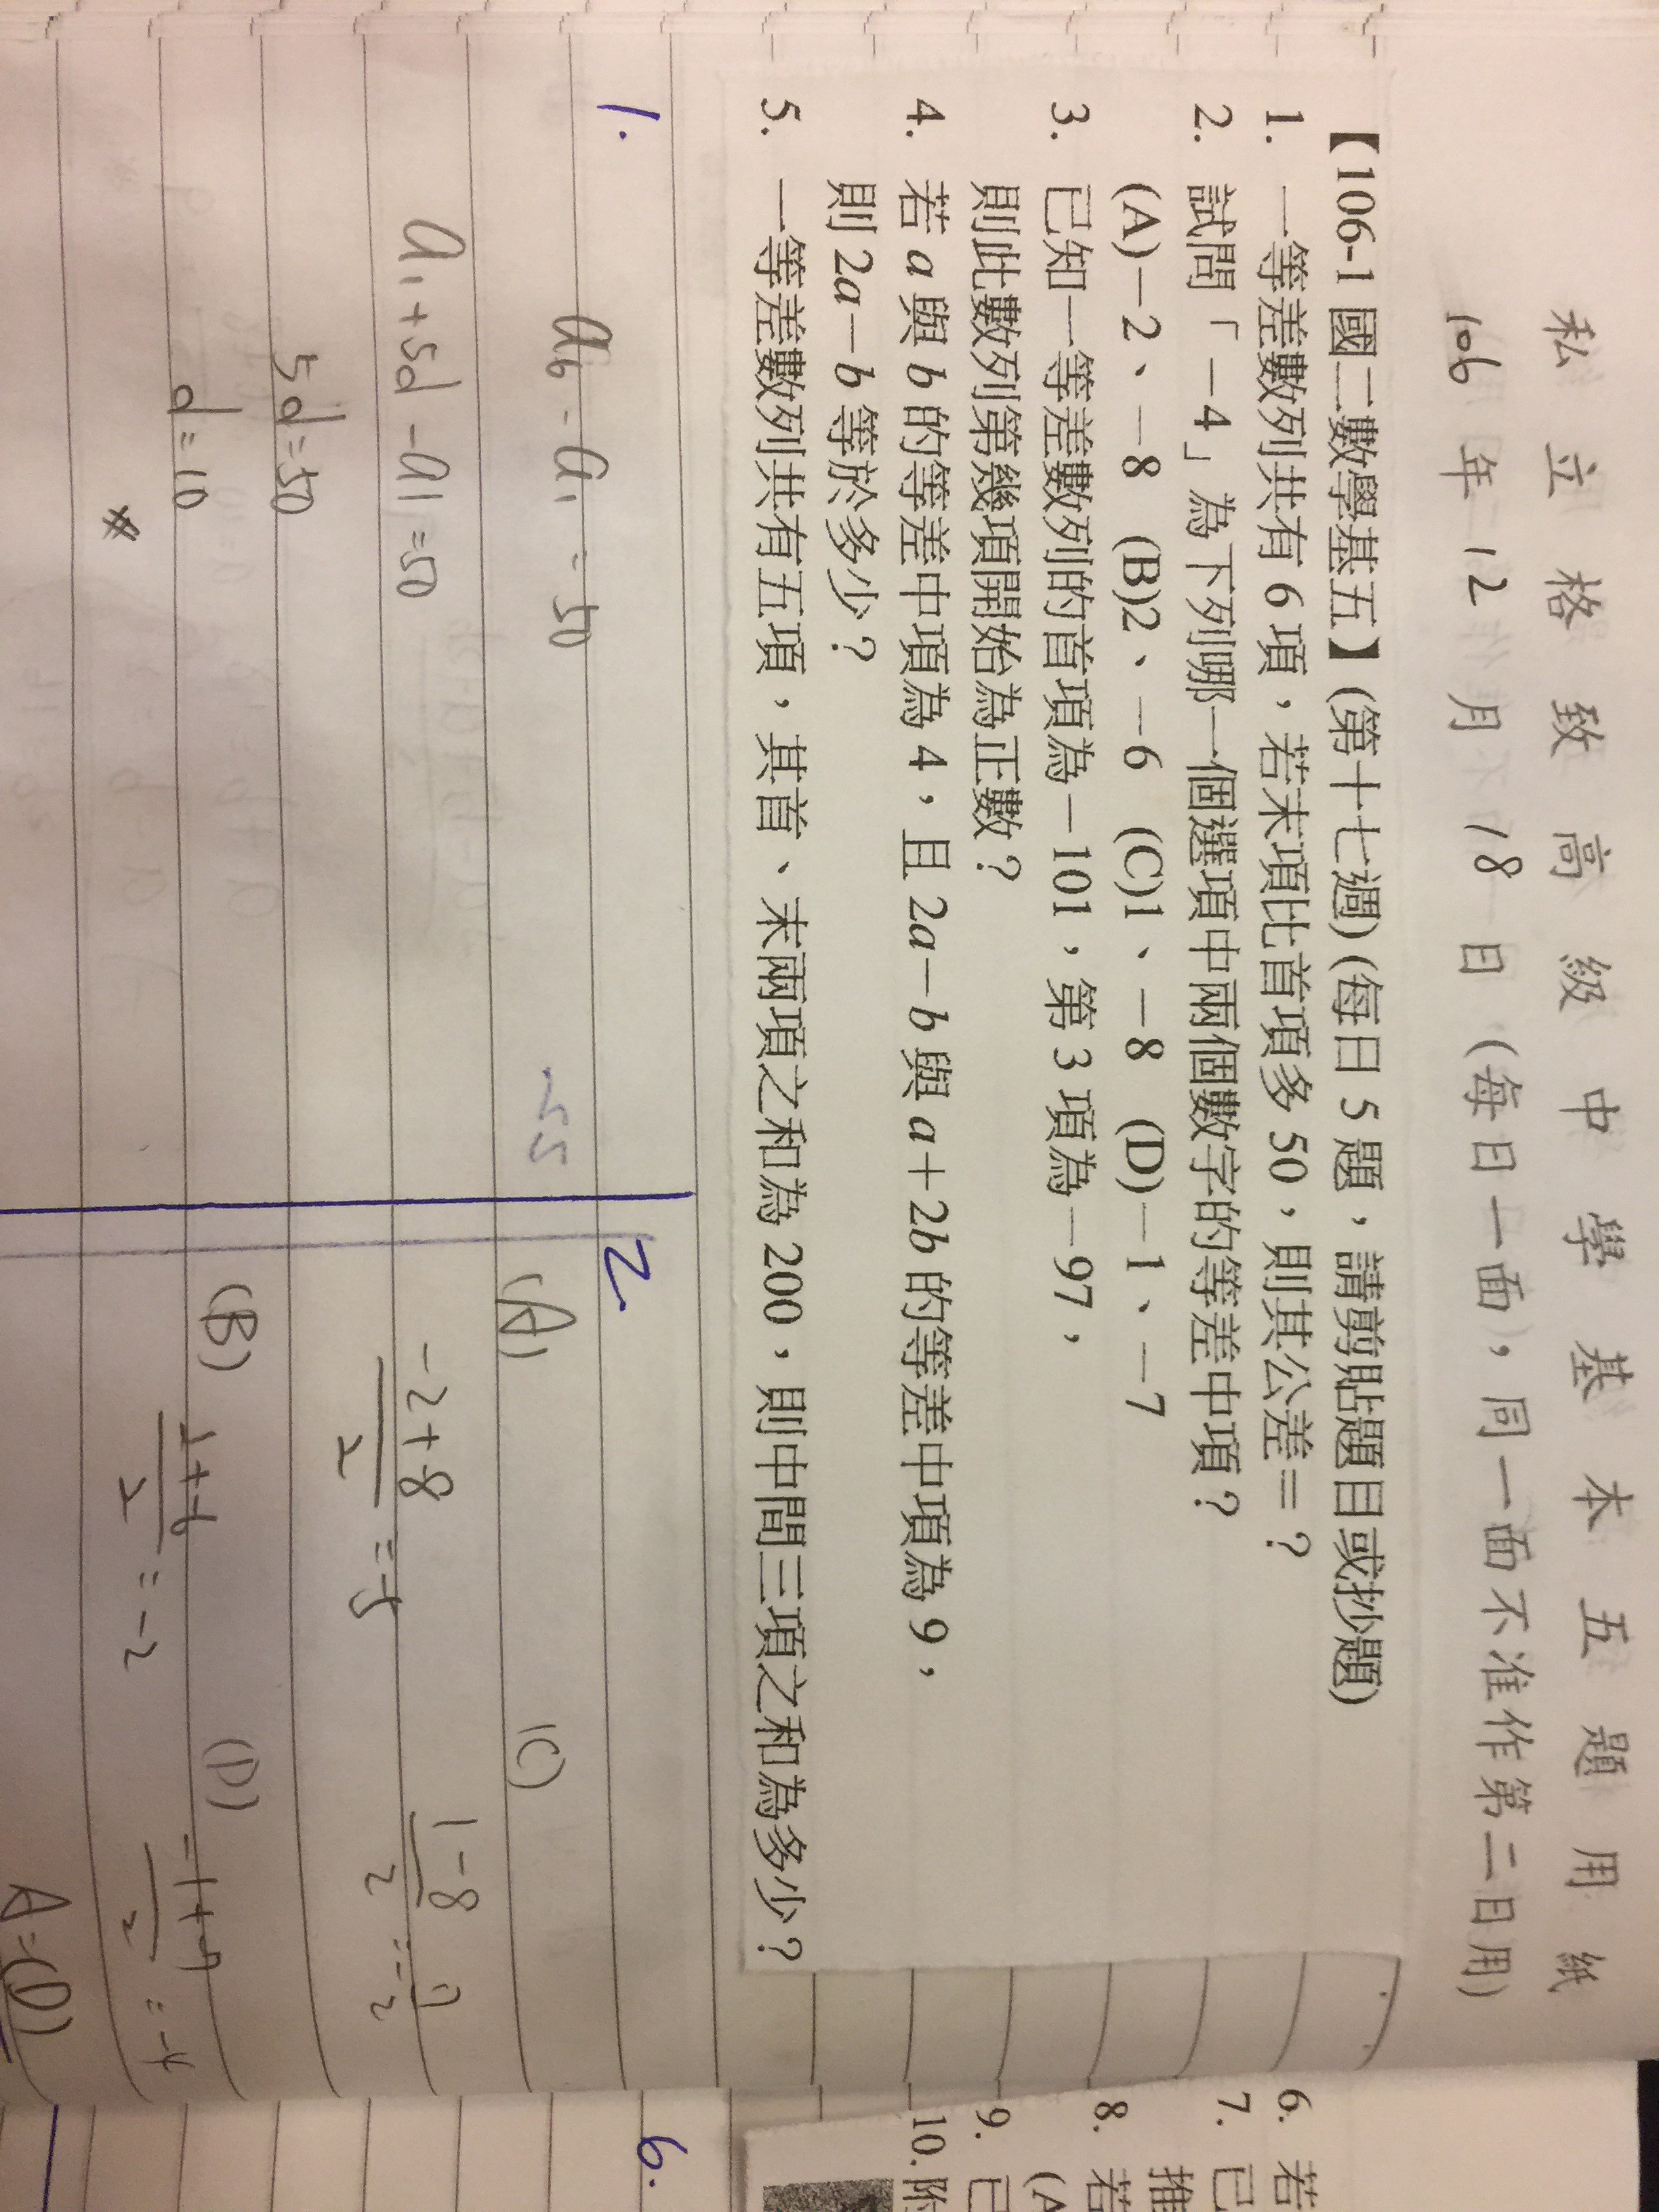 私立格致高級中學基本五題用紙
106年12月18日(每日一面),同一面不准作第二日用)
【106-1 國二數學基五】(第十七週)(每日 5 題,請剪貼題目或抄題)
1. 一等差數列共有 6 項,若末項比首項多 50,則其公差=?
2. 試問「-4」為下列哪一個選項中兩個數字的等差中項?
(A)-2、-8 (B)2、-6 (C)1、-8 (D)-1、-7
3. 已知一等差數列的首項為-101,第 3 項為-97,
則此數列第幾項開始為正數?
4. 若 a 與 b 的等差中項為 4,且 2a-b 與 a+2b 的等差中項為 9,
則 2a-b 等於多少?
5. 一等差數列共有五項,其首、末兩項之和為 200,則中間三項之和為多少?
1.
a6-a1=50
a1+5d-a1=50
5d=50
d=10
2.
(A)
(B)
(C)
(D)
A=(D)
6. 若
7. 已
推
8. 若
(A
9. 已
10. 附
6.